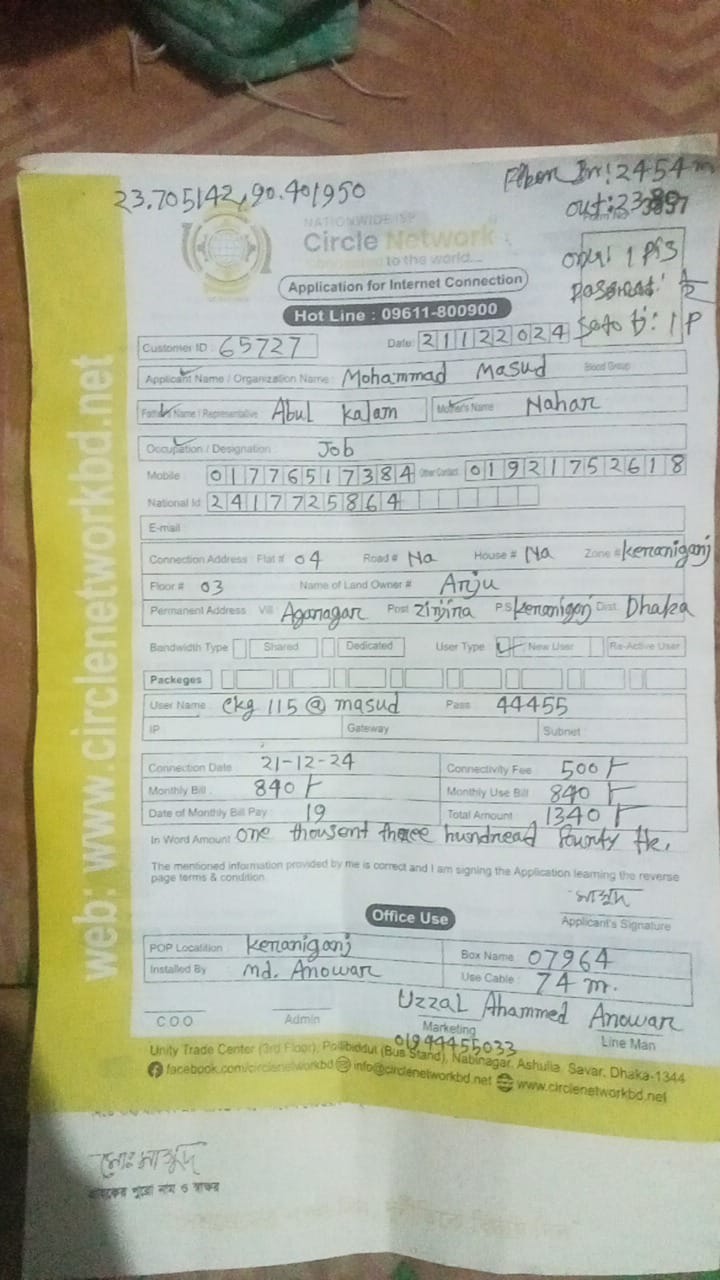 23.705142,90.401950
Fiber In: 2454 m
out: 2380
NATIONWIDE ISP
Circle Network
to the world...
Application for Internet Connection
Hot Line : 09611-800900
onu: 1 Pis
1 P
Customer ID : 65727 Date: 21122024
Applicant Name / Organization Name : Mohammad Masud Blood Group
Father's Name / Representative Abul Kalam Mother's Name Nahar
Occupation / Designation : Job
Mobile 01776517384 Other Contact 01921752618
National Id 2417725864
E-mail
Connection Address Flat # 04 Road # Na House # Na Zone # Keraniganj
Floor # 03 Name of Land Owner # Anju
Permanent Address Vill Aganagar Post Zinjira P.S Keraniganj Dist. Dhaka
Bandwidth Type Shared Dedicated User Type New User Re-Active User
Packeges
User Name : ckg 115 @ masud Pass 44455
IP Gateway Subnet
Connection Date : 21-12-24 Connectivity Fee : 500/-
Monthly Bill : 840/- Monthly Use Bill : 840/-
Date of Monthly Bill Pay : 19 Total Amount : 1340/-
In Word Amount one thousent theree hundread fourty tk.
The mentioned information provided by me is correct and I am signing the Application learning the reverse
page terms & condition.
মাসুদ
Applicant's Signature
Office Use
POP Locatition : Keraniganj Box Name : 07964
Installed By md. Anowar Use Cable : 74 m.
Uzzal Ahammed Anowar
C.O.O Admin Marketing Line Man
01944455033
Unity Trade Center (3rd Floor), Pollibiddut (Bus Stand), Nabinagar, Ashulia, Savar, Dhaka-1344
facebook.com/circlenetworkbd info@circlenetworkbd.net www.circlenetworkbd.net
web: www.circlenetworkbd.net
মোঃ মাসুদ
গ্রাহকের পুরো নাম ও স্বাক্ষর